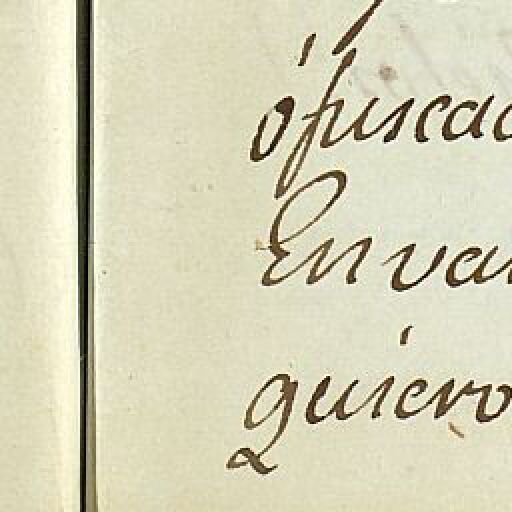 ófuscad
En van
quiero